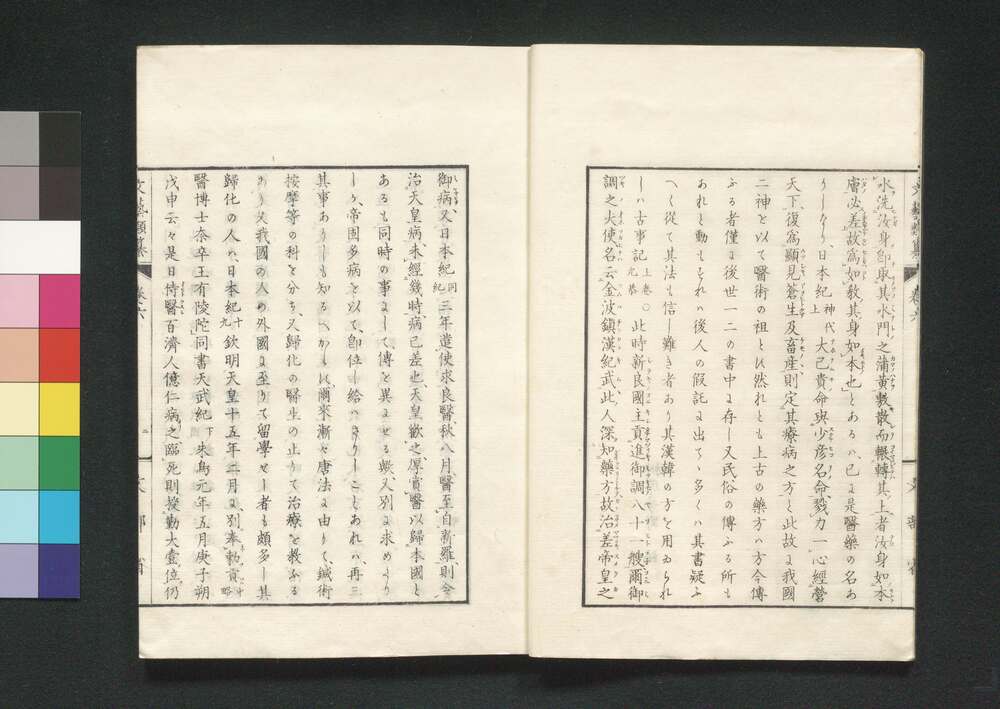 水洗汝身、卽取其水門之蒲黃敷散而輾轉其上者汝身如本
膚必差、故爲如敎其身如本也」とあるハ、已に是醫藥の名あ
りしなり、日本紀 神代上 大己貴命與少彦名命、戮力一心經營
天下、復爲顯見蒼生及畜產、則定其療病之方と此故に我國
二神を以て醫術の祖とハ然れとも上古の藥方ハ方今傳
ふる者僅に後世一二の書中に存し又民俗の傳ふる所も
あれと動もすれハ後人の假託に出て、多くハ其書疑ふ
へく從て其法も信し難き者あり其漢韓の方を用ゐられ
しハ古事記 上卷〇允恭 此時新良國主貢進御調八十一艘爾御
調之大使名云金波鎮漢紀武、此人深知藥方故治差帝皇之
御病又日本紀 同紀 三年遣使求良醫秋八月醫至自新羅則令
治天皇病、未經幾時、病已差也、天皇歡之、厚賞醫以歸本國と
あるも同時の事にして傳を異にせる歟、又別に求めより
しか、帝固多病を以て、卽位し給ハさりしことあれハ、再三
其事ありしも知るへからす爾來漸々唐法に由りて、鍼術
按摩等の科を分ち、又歸化の醫生の止りて治療を敎ふる
あり又我國の人の外國に至りて留學せし者も頗多し其
歸化の人ハ、日本紀 十九 欽明天皇十五年二月に、別奉勅貢 略
醫博士奈率王有陵陀同書天武紀 下 朱鳥元年五月庚子朔
戊申云々是日侍醫百濟人億仁病之臨死則授勤大壹位仍
文藝類纂 卷六 文部省
文藝類纂 卷六 二 文部省